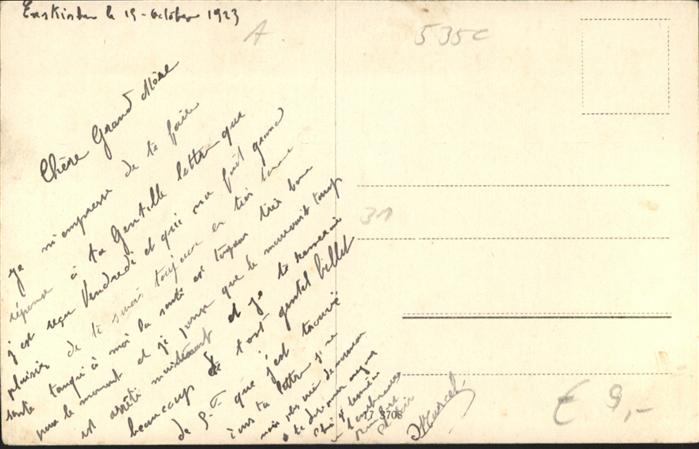 Euskirchen le 15 - October 1923
A
535C
Chère Grand Mère
je m'empresse de te faire
réponse à ta Gentille lettre que
j'est reçu Vendredi et qui ma fait grand
plaisir de te savoir toujour en très bonne
sante tanqu'à moi la santé est toujour très bone
pour le moment et je pense que le mauvait temp
est arêté maintenant et je te remercie
beaucoup de tont gentil billet
de 5.F que j'est trouvé
dans ta lettre je ne
vois plus rien de nouveau
a te dire
31
Marcel
€ 9,-